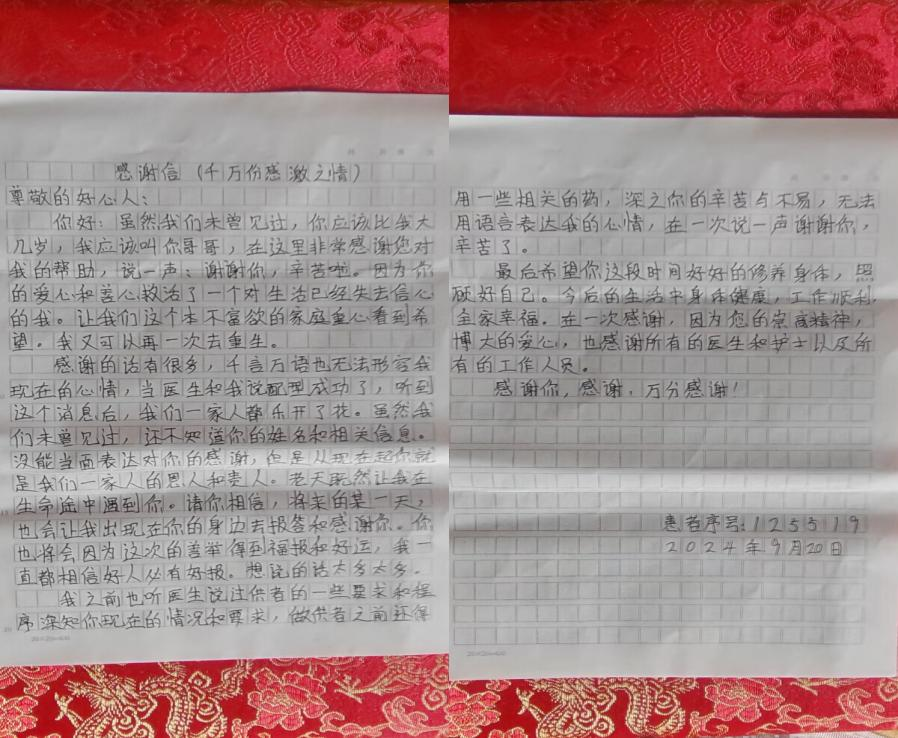 感谢信（千万份感激之情）
尊敬的好心人：
你好：虽然我们未曾见过，你应该比我大
几岁，我应该叫你哥哥，在这里非常感谢您对
我的帮助，说一声：谢谢你，辛苦啦。因为你
的爱心和善心救活了一个对生活已经失去信心
的我。让我们这个本不富欲的家庭重心看到希
望。我又可以再一次去重生。
感谢的话有很多，千言万语也无法形容我
现在的心情，当医生和我说配型成功了，听到
这个消息后，我们一家人都乐开了花。虽然我
们未曾见过，还不知道你的姓名和相关信息。
没能当面表达对你的感谢，但是从现在起你就
是我们一家人的恩人和贵人。老天既然让我在
生命途中遇到你。请你相信，将来的某一天，
也会让我出现在你的身边去报答和感谢你。你
也将会因为这次的善举得到福报和好运，我一
直都相信好人必有好报。想说的话太多太多。
我之前也听医生说过供者的一些要求和程
序深知你现在的情况和要求，做供者之前还得
用一些相关的药，深之你的辛苦与不易，无法
用语言表达我的心情，在一次说一声谢谢你，
辛苦了。
最后希望你这段时间好好的修养身体，照
顾好自己。今后的生活中身体健康，工作顺利，
全家幸福。在一次感谢，因为您的崇高精神，
博大的爱心，也感谢所有的医生和护士以及所
有的工作人员。
感谢你，感谢，万分感谢！
患者序号：125519
2024年9月20日